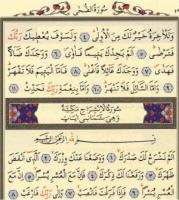 سُورَةُ الضُّحٰى
وَلَلْاٰخِرَةُ خَيْرٌ لَكَ مِنَ الْاُولٰى ﴿٤﴾ وَلَسَوْفَ يُعْطٖيكَ رَبُّكَ
فَتَرْضٰى ﴿٥﴾ اَلَمْ يَجِدْكَ يَتٖيمًا فَاٰوٰى ﴿٦﴾ وَوَجَدَكَ ضَٓالًّا
فَهَدٰى ﴿٧﴾ وَوَجَدَكَ عَٓائِلًا فَاَغْنٰى ﴿٨﴾ فَاَمَّا الْيَتٖيمَ فَلَا تَقْهَرْ
﴿٩﴾ وَاَمَّا السَّٓائِلَ فَلَا تَنْهَرْ ﴿١٠﴾ وَاَمَّا بِنِعْمَةِ رَبِّكَ فَحَدِّثْ ﴿١١﴾
سُورَةُ الْاِنْشِرَاحِ مَكِّيَّةٌ
وَهِيَ ثَمَانِي اٰيَاتٍ
بِسْمِ اللّٰهِ الرَّحْمٰنِ الرَّحٖيمِ
اَلَمْ نَشْرَحْ لَكَ صَدْرَكَ ﴿١﴾ وَوَضَعْنَا عَنْكَ وِزْرَكَ ﴿٢﴾ اَلَّذٖٓي اَنْقَضَ
ظَهْرَكَ ﴿٣﴾ وَرَفَعْنَا لَكَ ذِكْرَكَ ﴿٤﴾ فَاِنَّ مَعَ الْعُسْرِ يُسْرًا ﴿٥﴾ اِنَّ مَعَ
الْعُسْرِ يُسْرًا ﴿٦﴾ فَاِذَا فَرَغْتَ فَانْصَبْ ﴿٧﴾ وَاِلٰى رَبِّكَ فَارْغَبْ ﴿٨﴾